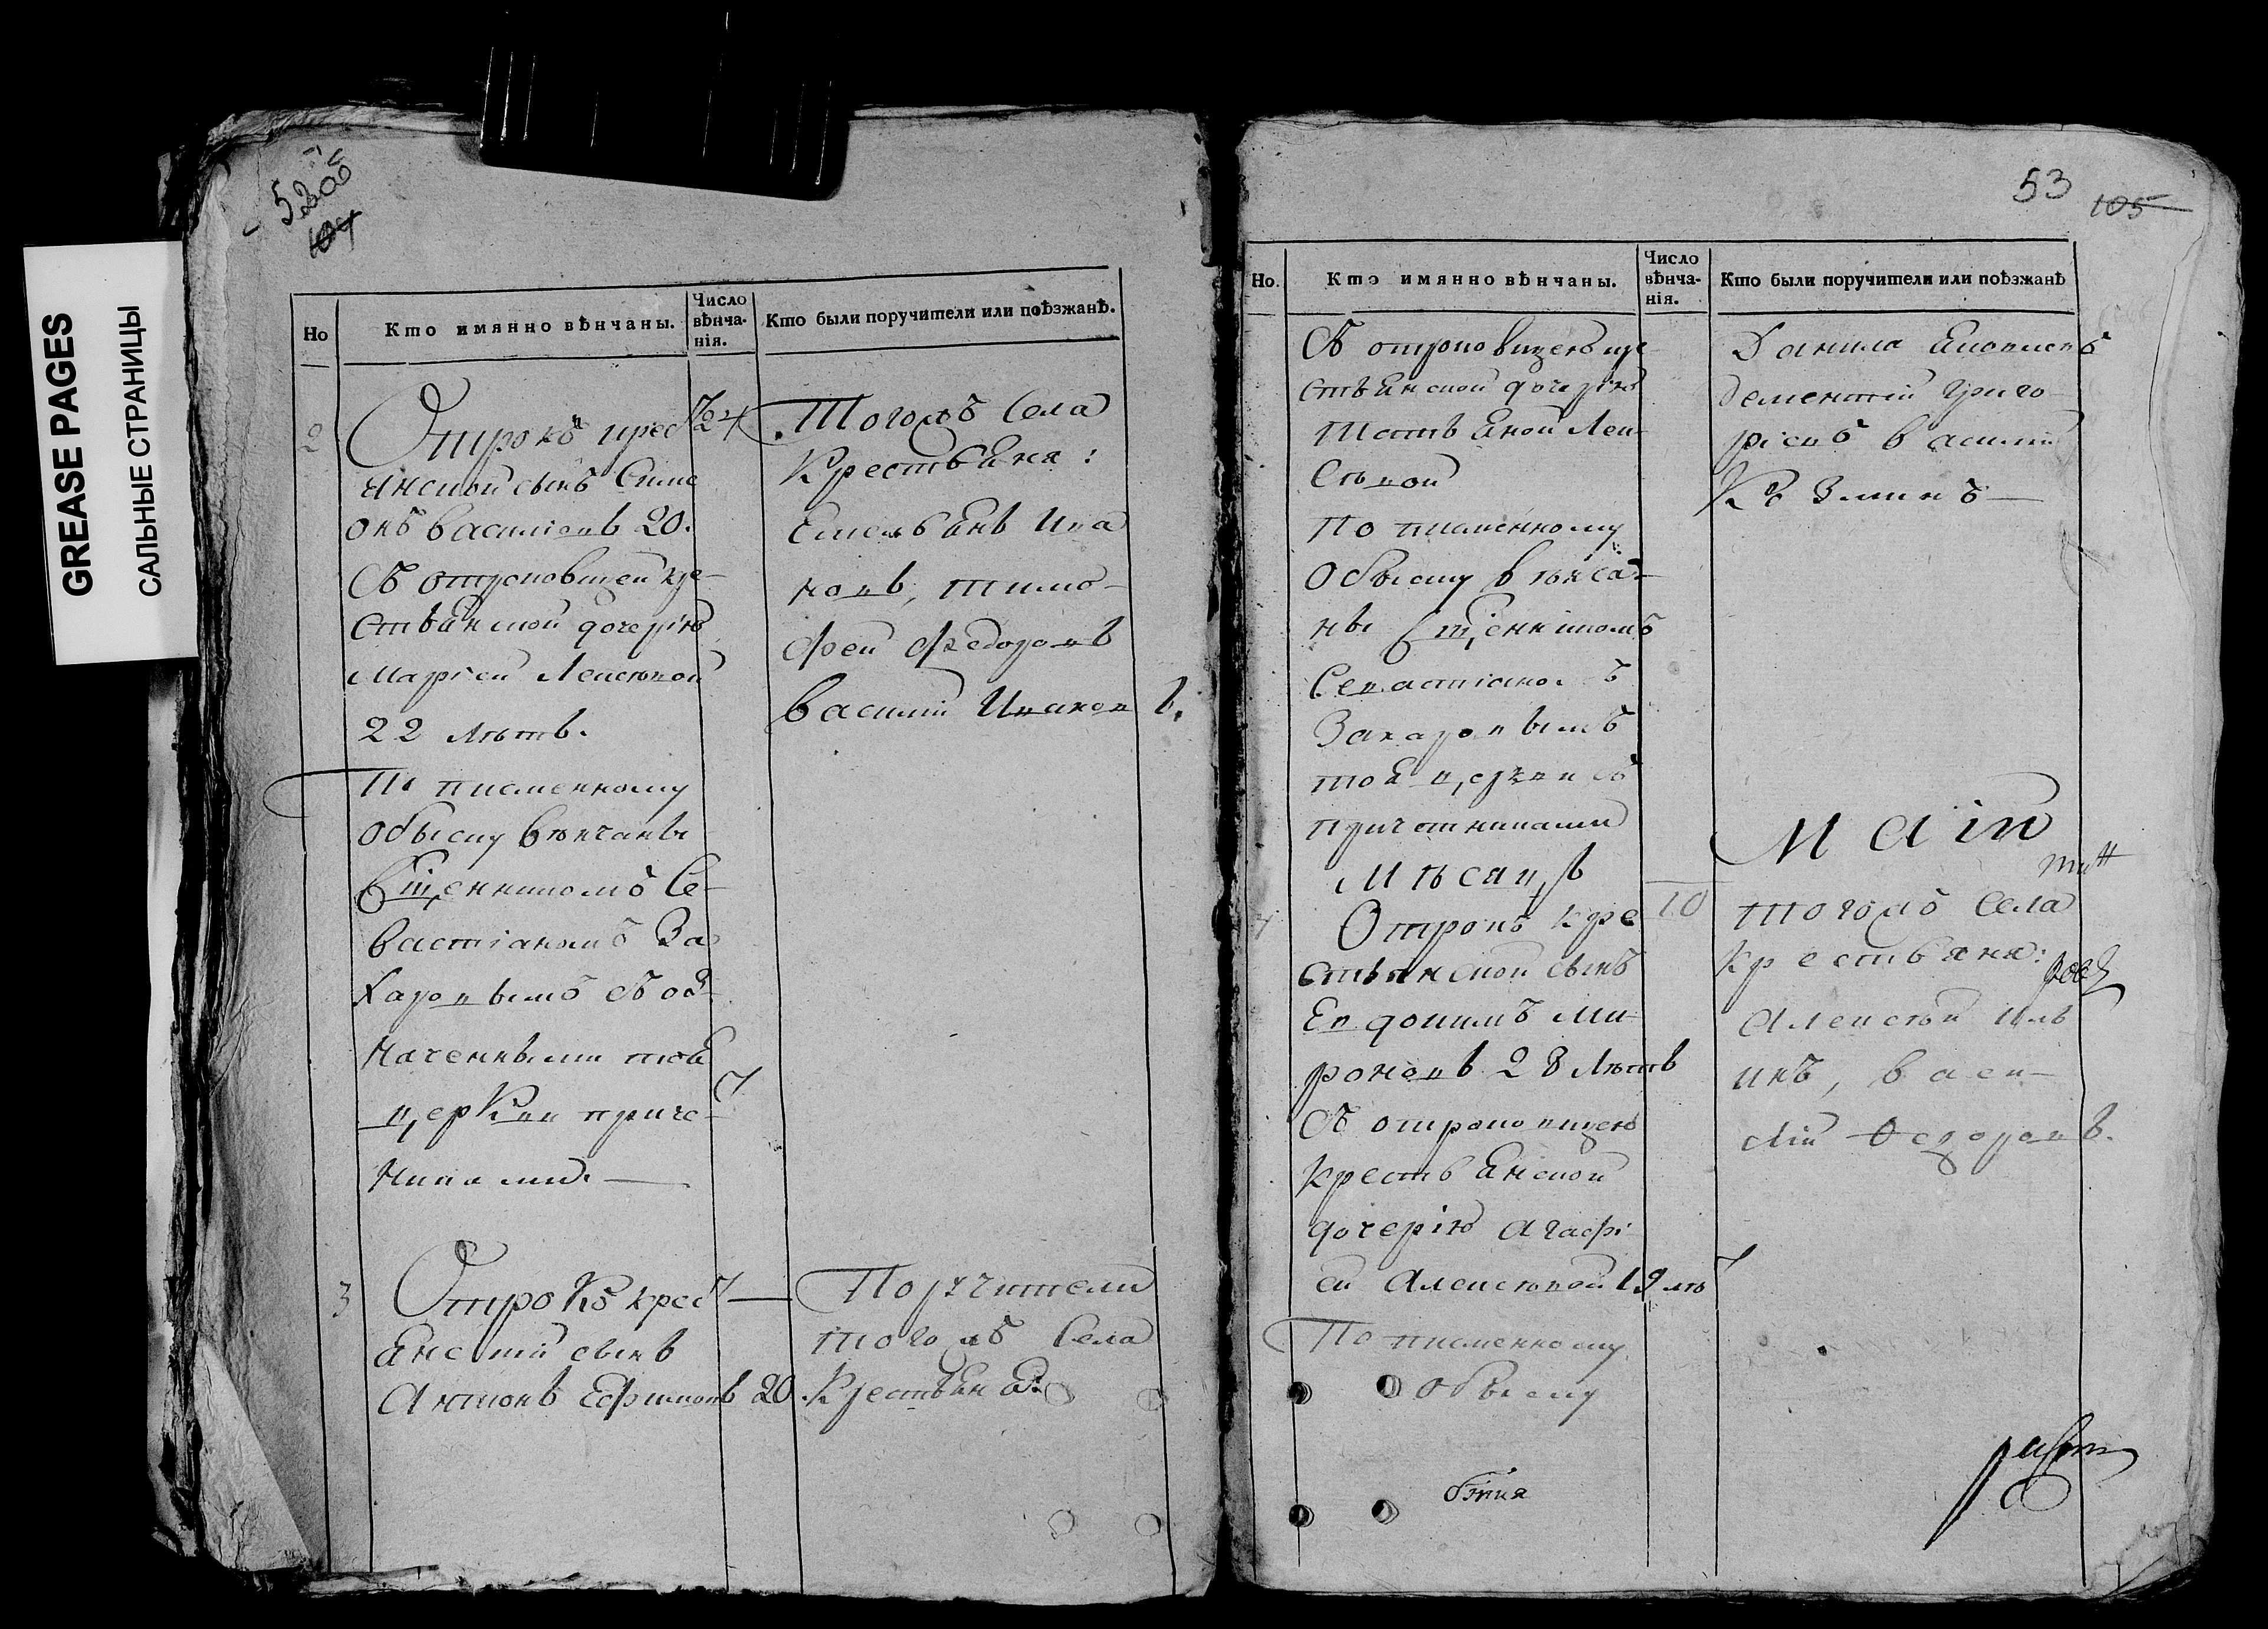 GREASE PAGES
САЛЬНЫЕ СТРАНИЦЫ
52об
104
Но
Кто имянно вѣнчаны.
Число вѣнча-
нія.
Кто были поручители или поѣзжанѣ.
2
Отрокъ крес
24
янской сынъ Симе
онъ Василіевъ 20.
Съ отроковицей кре-
стьянской дочерію
Маріей Алексѣвой
22 лѣтъ.
По писменному
обыску вѣнчаны
Сщенникомъ Се-
вастіаномъ За
харовымъ съ оз-
наченными тоя
церкви приче-
никами.
Тогожъ Села
Крестьяня:
Емельянъ Ива
новъ, Тимо-
фей Федоровъ
Василій Ивановъ.
3
Отрокъ крес
янскій сынъ
Антонъ Ефимовъ 20.
Поручители
тогожъ Села
Крестьяня:
53
105
Но.
Кто имянно вѣнчаны.
Число
вѣнча-
нія.
Кто были поручители или поѣзжанѣ
Съ отроковицею кре
стьянской дочерію
Татьяной Алек
сѣвой
По писменному
обыску вѣнча-
ны Сщенникомъ
Севастіаномъ
Захаровымъ
тоя церкви съ
причетниками
Данила Яковлевъ
Дементій Григо
ріевъ Василій
Козминъ
Мѣсяцъ
Маій
Отрокъ кре
10
стьянской сынъ
Евдокимъ Ми-
роновъ 28 лѣтъ
Съ отроковицею
крестьянской
дочерію Агафі
ей Алексѣвой 19 лѣ
По писменному
обыску
тогожъ Села
крестьяня:
Алексѣй Иль
инъ, Васи-
лій Ѳедоровъ.